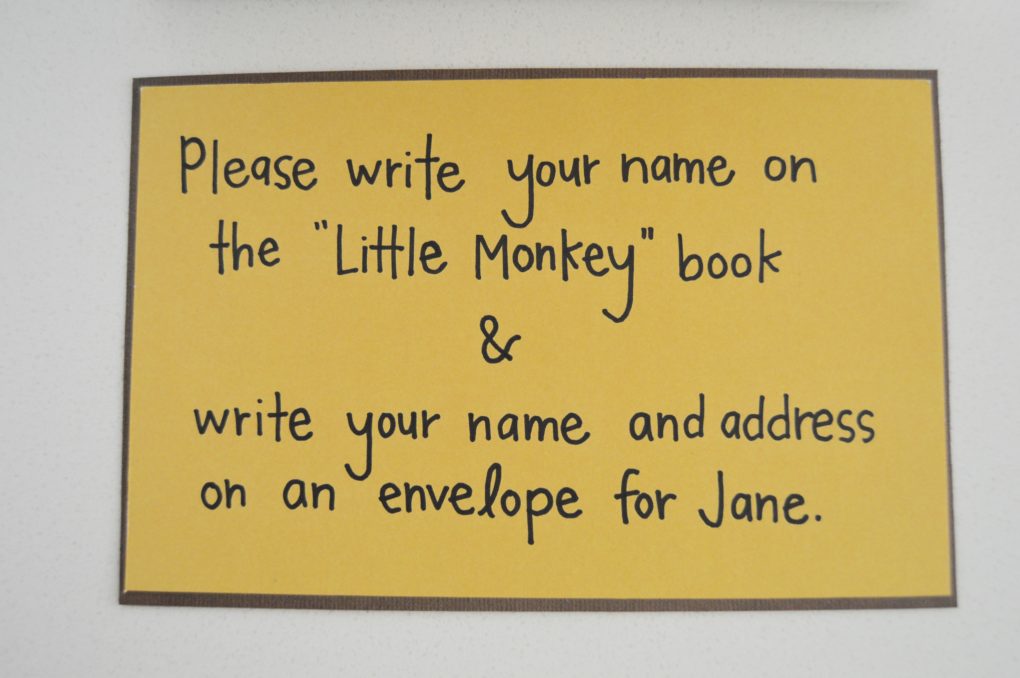 Please write your name on
the "Little Monkey" book
&
write your name and address
on an envelope for Jane.